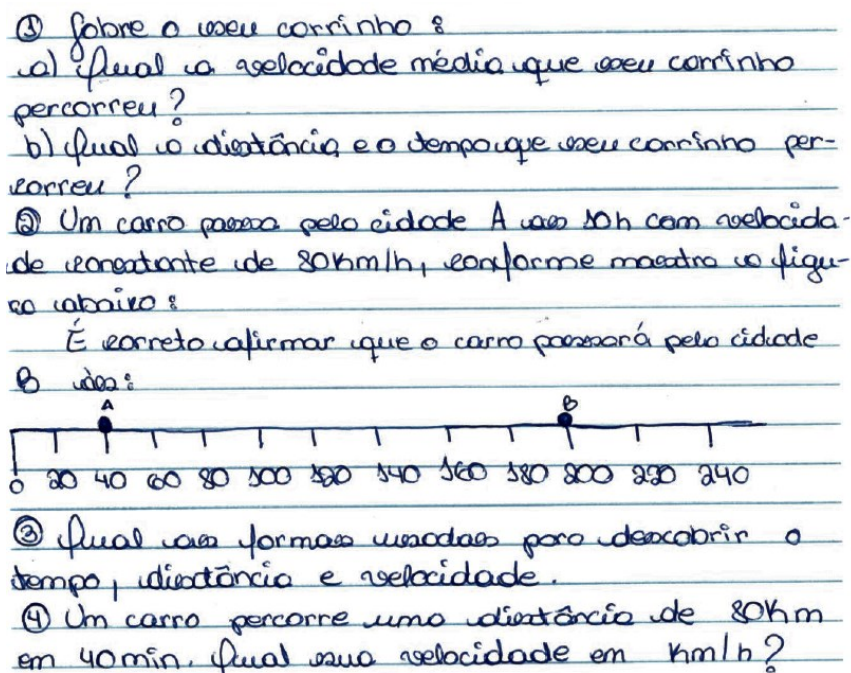 ① Sobre o seu carrinho:
a) Qual a velocidade média que seu carrinho
percorreu?
b) Qual a distância e o tempo que seu carrinho per-
correu?
② Um carro passa pela cidade A às 10h com velocida-
de constante de 80km/h, conforme mostra a figu-
ra abaixo:
É correto afirmar que o carro passará pela cidade
B às:
A B
0 20 40 60 80 100 120 140 160 180 200 220 240
③ Qual as formas usadas para descobrir o
tempo, distância e velocidade.
④ Um carro percorre uma distância de 80Km
em 40min. Qual sua velocidade em km/h?